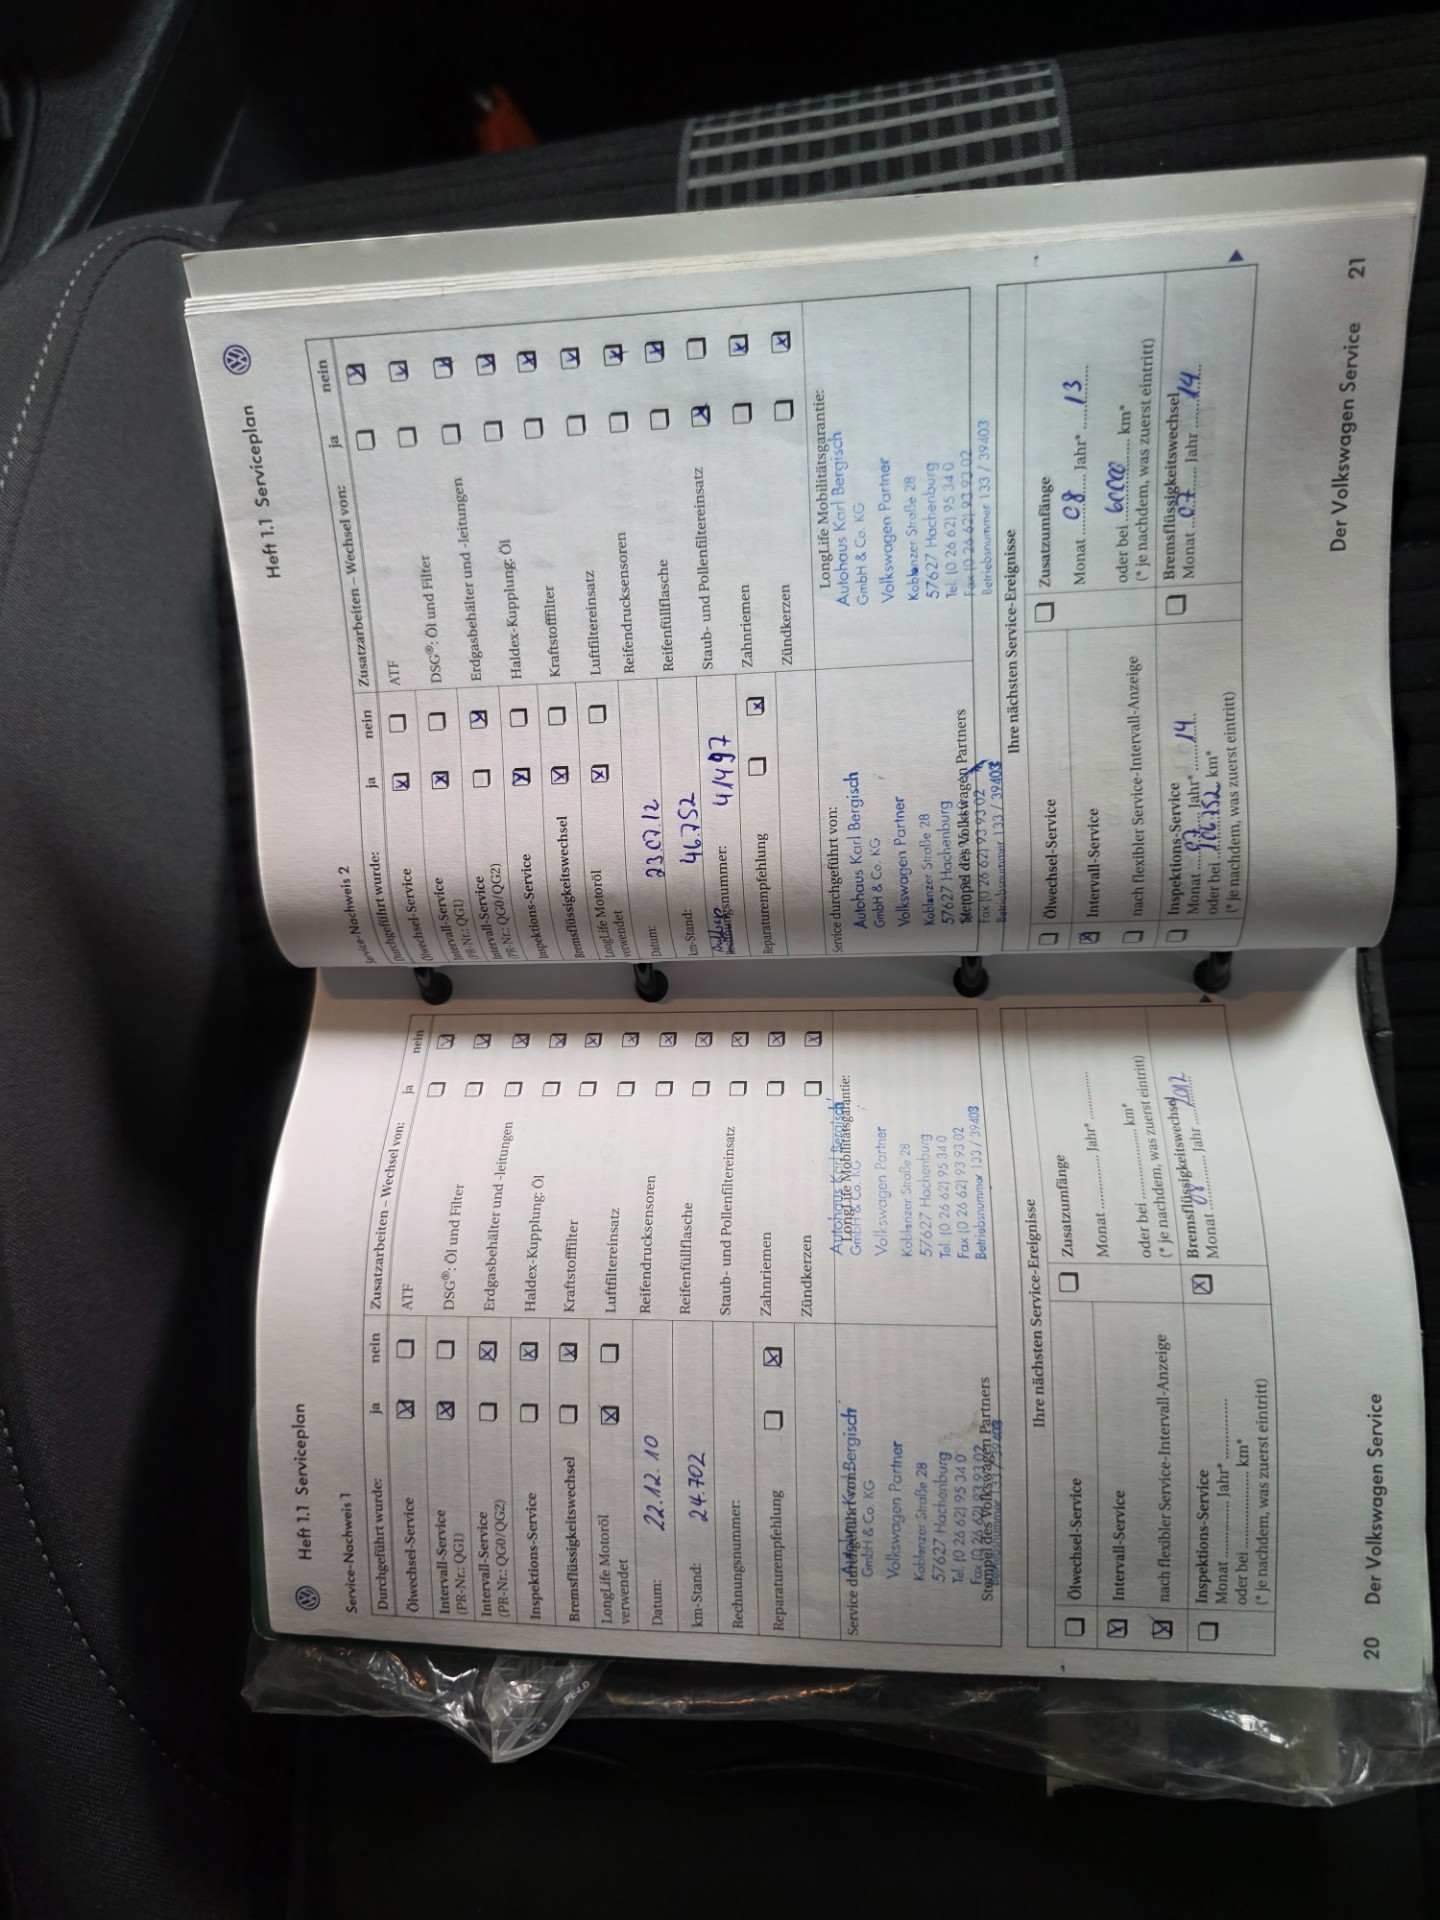 Heft 1.1 Serviceplan
Service-Nachweis 1
Durchgeführt wurde: ja nein
Ölwechsel-Service
Intervall-Service
(PR-Nr.: QG1)
Intervall-Service
(PR-Nr.: QG0/QG2)
Inspektions-Service
Bremsflüssigkeitswechsel
LongLife Motoröl
verwendet
Datum: 22.12.10
km-Stand: 24.702
Rechnungsnummer:
Reparaturempfehlung
Zusatzarbeiten – Wechsel von: ja nein
ATF
DSG®: Öl und Filter
Erdgasbehälter und -leitungen
Haldex-Kupplung: Öl
Kraftstofffilter
Luftfiltereinsatz
Reifendrucksensoren
Reifenfüllflasche
Staub- und Pollenfiltereinsatz
Zahnriemen
Zündkerzen
Service durchgeführt von:
Autohaus Karl Bergisch
GmbH & Co. KG
Volkswagen Partner
Koblenzer Straße 28
57627 Hachenburg
Tel. (0 26 62) 95 34 0
Fax (0 26 62) 93 93 02
Stempel des Volkswagen Partners
Betriebsnummer 133 / 39403
LongLife Mobilitätsgarantie:
Autohaus Karl Bergisch
GmbH & Co. KG
Volkswagen Partner
Koblenzer Straße 28
57627 Hachenburg
Tel. (0 26 62) 95 34 0
Fax (0 26 62) 93 93 02
Betriebsnummer 133 / 39403
Ihre nächsten Service-Ereignisse
Ölwechsel-Service
Intervall-Service
nach flexibler Service-Intervall-Anzeige
Inspektions-Service
Monat ............ Jahr* ............
oder bei ............ km*
(* je nachdem, was zuerst eintritt)
Zusatzumfänge
Monat ............ Jahr* ............
oder bei ............ km*
(* je nachdem, was zuerst eintritt)
Bremsflüssigkeitswechsel
Monat 08 Jahr 2012
20 Der Volkswagen Service
Heft 1.1 Serviceplan
Service-Nachweis 2
Durchgeführt wurde: ja nein
Ölwechsel-Service
Intervall-Service
(PR-Nr.: QG1)
Intervall-Service
(PR-Nr.: QG0/QG2)
Inspektions-Service
Bremsflüssigkeitswechsel
LongLife Motoröl
verwendet
Datum: 23.07.12
km-Stand: 46.752
41497
Reparaturempfehlung
Zusatzarbeiten – Wechsel von: ja nein
ATF
DSG®: Öl und Filter
Erdgasbehälter und -leitungen
Haldex-Kupplung: Öl
Kraftstofffilter
Luftfiltereinsatz
Reifendrucksensoren
Reifenfüllflasche
Staub- und Pollenfiltereinsatz
Zahnriemen
Zündkerzen
Service durchgeführt von:
Autohaus Karl Bergisch
GmbH & Co. KG
Volkswagen Partner
Koblenzer Straße 28
57627 Hachenburg
Stempel des Volkswagen Partners
Fax (0 26 62) 93 93 02
Betriebsnummer 133 / 39403
LongLife Mobilitätsgarantie:
Autohaus Karl Bergisch
GmbH & Co. KG
Volkswagen Partner
Koblenzer Straße 28
57627 Hachenburg
Tel. (0 26 62) 95 34 0
Fax (0 26 62) 93 93 02
Betriebsnummer 133 / 39403
Ihre nächsten Service-Ereignisse
Ölwechsel-Service
Intervall-Service
nach flexibler Service-Intervall-Anzeige
Inspektions-Service
Monat 07 Jahr* 14
oder bei 106.752 km*
(* je nachdem, was zuerst eintritt)
Zusatzumfänge
Monat 08 Jahr* 13
oder bei 60000 km*
(* je nachdem, was zuerst eintritt)
Bremsflüssigkeitswechsel
Monat 07 Jahr 14
Der Volkswagen Service 21